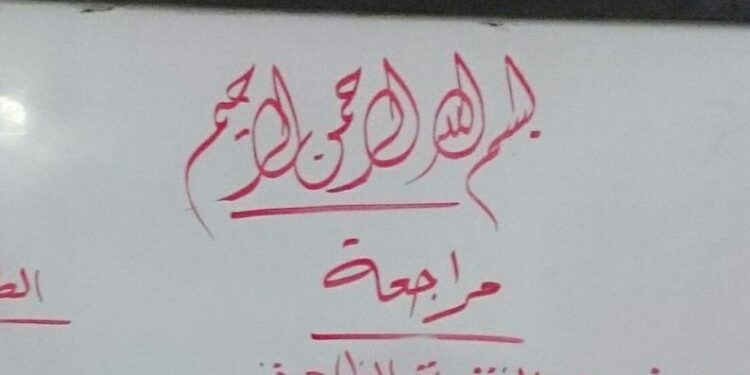 بسم الله الرحمن الرحيم
مراجعة